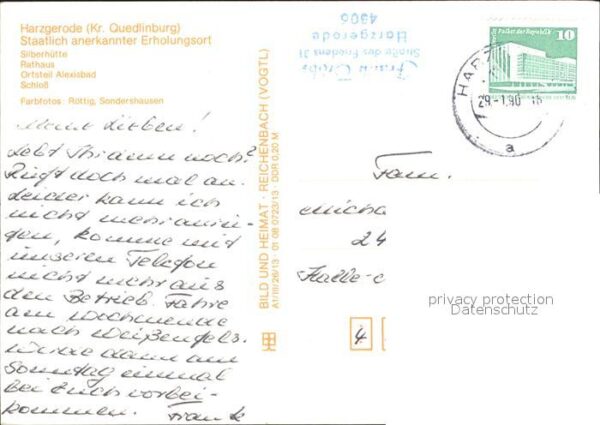 Harzgerode (Kr. Quedlinburg)
Staatlich anerkannter Erholungsort
Silberhütte
Rathaus
Ortsteil Alexisbad
Schloß
Farbfotos: Rottig, Sondershausen
Meine Lieben!
Lebt Ihr denn noch?
Ruft doch mal an.
Leider kann ich
nicht mehr anru-
fen, komme mit
unserem Telefon
nicht mehr aus
dem Betrieb. Fahre
am Wochenende
nach Weißenfels.
Würde dann am
Sonntag einmal
bei Euch vorbei-
kommen. Frank
BILD UND HEIMAT · REICHENBACH (VOGTL)
A1/III/26/13 · 01 08 0723/13 · DDR 0,20 M
Straße des Friedens 31
Harzgerode
4306
Palast der Republik
10
HARZ
29-1.90
a
Fam.
Micha
24
Halle-
4
privacy protection
Datenschutz